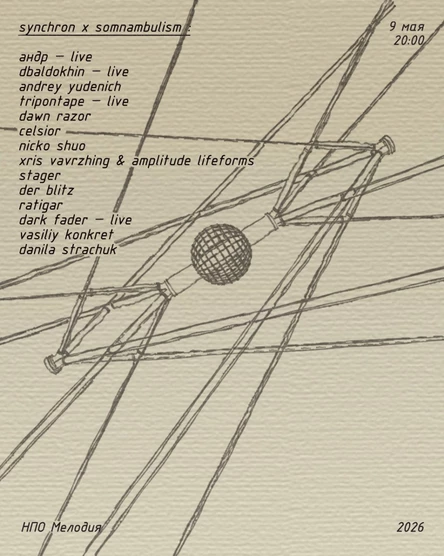 synchron x somnambulism :
9 мая
20:00
андр — live
dbaldokhin — live
andrey yudenich
tripontape — live
dawn razor
celsior
nicko shuo
xris vavrzhing & amplitude lifeforms
stager
der blitz
ratigar
dark fader — live
vasiliy konkret
danila strachuk
НПО Мелодия
2026